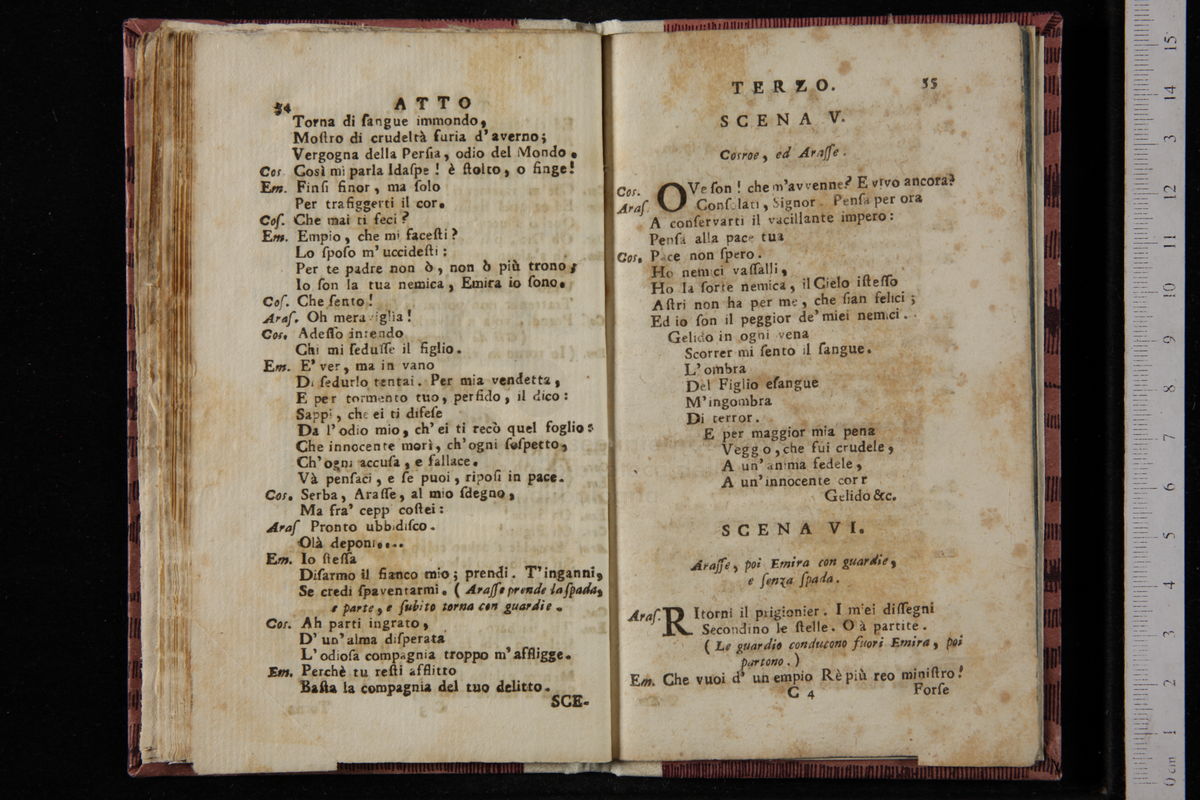 54 ATTO
Torna di ſangue immondo,
Moſtro di crudeltà furia d'averno;
Vergogna della Perſia, odio del Mondo.
Cos Così mi parla Idaſpe! è ſtolto, o finge!
Em. Finſi finor, ma ſolo
Per trafiggerti il cor.
Coſ. Che mai ti feci?
Em. Empio, che mi faceſti?
Lo ſpoſo m'uccideſti:
Per te padre non ò, non ò più trono;
Io ſon la tua nemica, Emira io ſono.
Coſ. Che ſento!
Araſ. Oh meraviglia!
Cos. Adeſſo intendo
Chi mi ſeduſſe il figlio.
Em. E' ver, ma in vano
Di ſedurlo tentai. Per mia vendetta,
E per tormento tuo, perfido, il dico:
Sappi, che ei ti difeſe
Da l'odio mio, ch'ei ti recò quel foglio:
Che innocente morì, ch'ogni ſoſpetto,
Ch'ogni accuſa, e fallace.
Và penſaci, e ſe puoi, ripoſi in pace.
Cos. Serba, Araſſe, al mio ſdegno,
Ma fra' cepp coſtei:
Araſ Pronto ubbidiſco.
Olà deponi....
Em. Io ſteſſa
Diſarmo il fianco mio; prendi. T'inganni,
Se credi ſpaventarmi. (Araſſe prende la ſpada,
e parte, e ſubito torna con guardie.
Cos. Ah parti ingrato,
D'un'alma diſperata
L'odioſa compagnia troppo m'affligge.
Em. Perchè tu reſti afflitto
Baſta la compagnia del tuo delitto.
SCE-
TERZO. 55
SCENA V.
Cosroe, ed Araſſe.
Cos. OVe ſon! che m'avvenne? E vivo ancora?
Araſ. Conſolati, Signor. Penſa per ora
A conſervarti il vacillante impero:
Penſa alla pace tua
Cos. Pace non ſpero.
Ho nemici vaſſalli,
Ho la ſorte nemica, il Cielo iſteſſo
Aſtri non ha per me, che ſian felici;
Ed io ſon il peggior de' miei nemici.
Gelido in ogni vena
Scorrer mi ſento il ſangue.
L'ombra
Del Figlio eſangue
M'ingombra
Di terror.
E per maggior mia pena
Veggo, che fui crudele,
A un'anima fedele,
A un'innocente corr
Gelido &c.
SCENA VI.
Araſſe, poi Emira con guardie,
e ſenza ſpada.
Araſ. RItorni il prigionier. I miei diſſegni
Secondino le ſtelle. O à partite.
(Le guardie conducono fuori Emira, poi
partono.)
Em. Che vuoi d' un empio Rè più reo miniſtro!
C 4 Forſe
0 cm 1 2 3 4 5 6 7 8 9 10 11 12 13 14 15